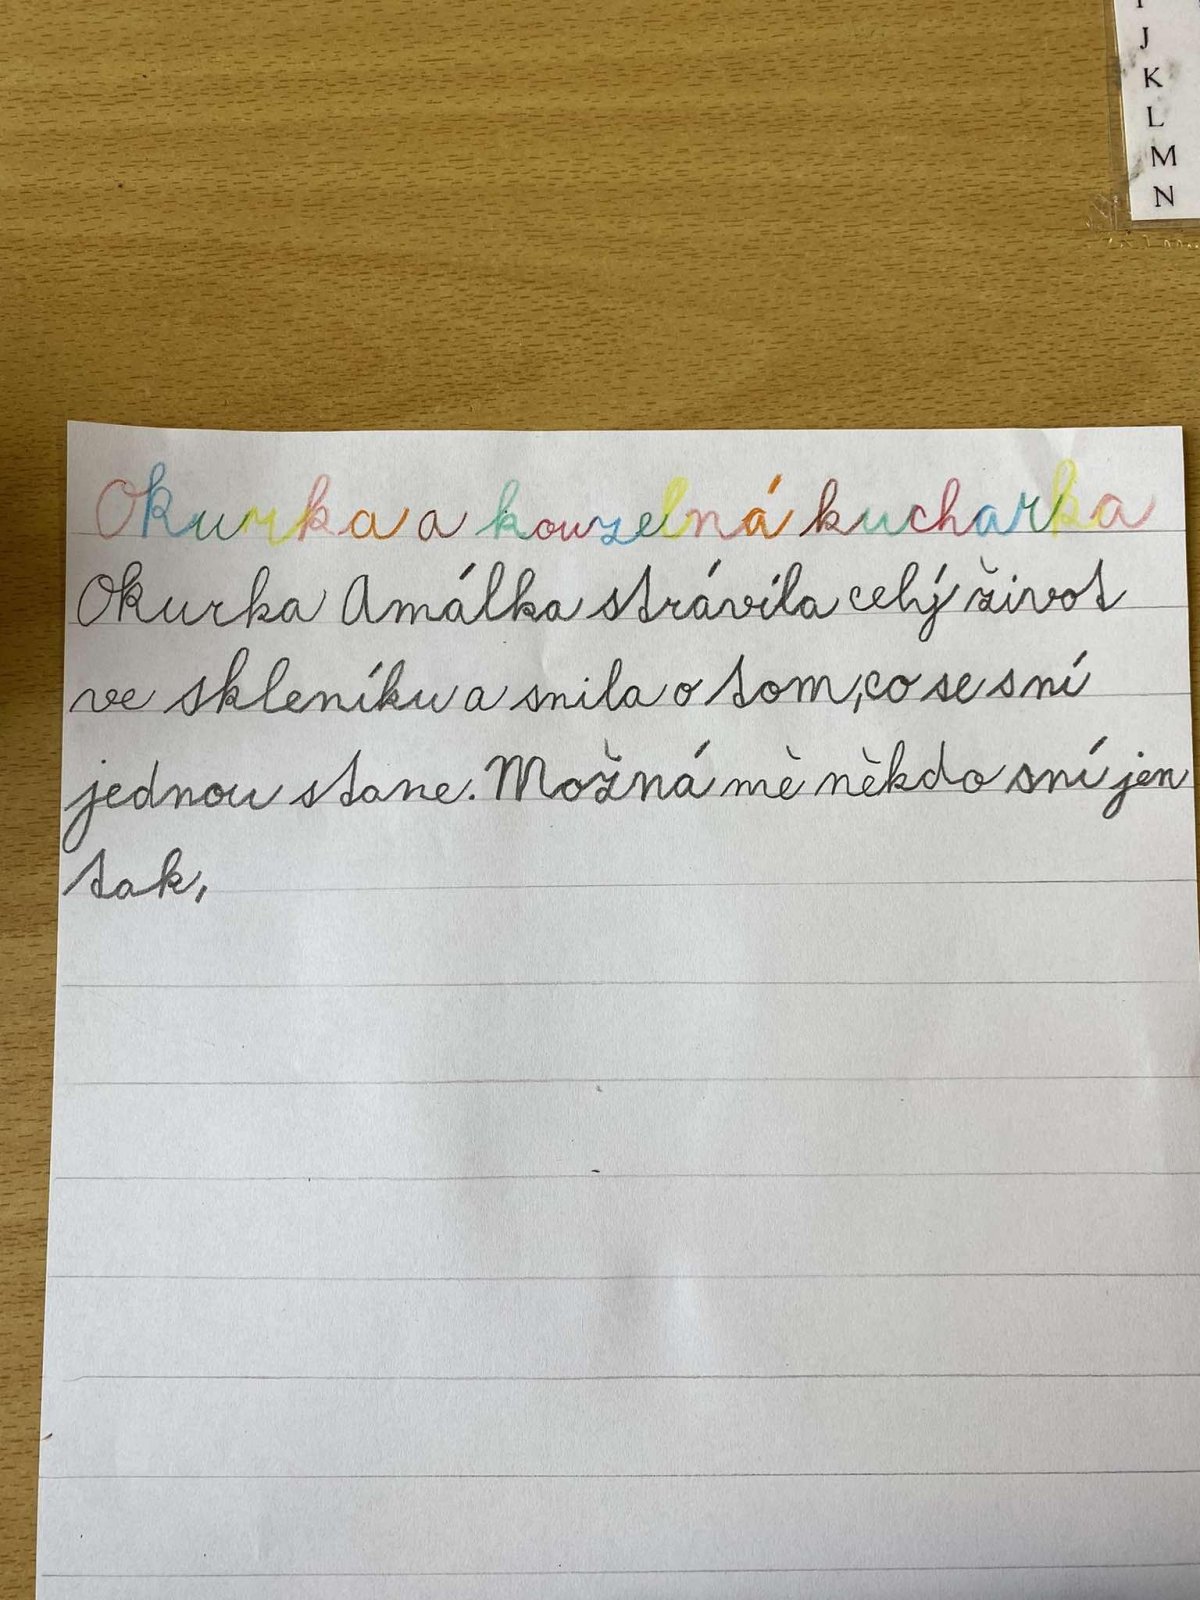 J
K
L
M
N
Okurka a kouzelná kucharka
Okurka Amálka strávila celý život
ve skleníku a snila o tom, co se s ní
jednou stane. Možná mě někdo sní jen
tak,